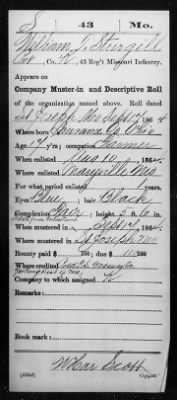 S 43 Mo.
William Sturgill
, Co. K, 43 Reg't Missouri Infantry.
Appears on
Company Muster-in and Descriptive Roll
of the organization named above. Roll dated
St Joseph Mo Sept 17, 1864
Where born Ohio
Age 17 y'rs; occupation Farmer
When enlisted Aug 10, 1864.
Where enlisted Maryville Mo
For what period enlisted 1 years.
Eyes Blue; hair Black
Complexion Fair; height 5 ft. 6 in.
When mustered in Sept 17, 1864.
Where mustered in St Joseph Mo
Bounty paid $ 100; due $ 100
Where credited
Company to which assigned K
Remarks:
Book mark:
Scott
Copyist.